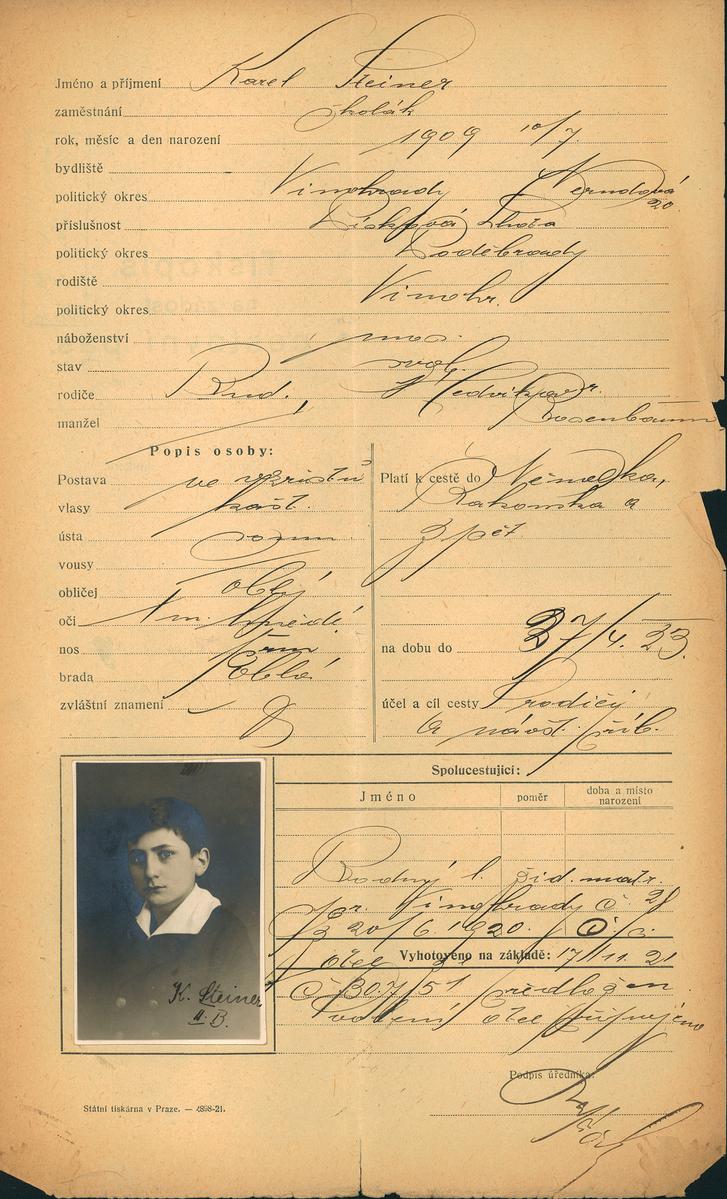 Jméno a příjmení Karel Steiner
zaměstnání školák
rok, měsíc a den narození 1909 10/7
bydliště
politický okres Vinohrady 20
příslušnost Lhota
politický okres Poděbrady
rodiště Vinohr.
politický okres
náboženství mos.
stav svob.
rodiče Rud. Hedvika r.
manžel Rosenbaum
Popis osoby:
Postava ve vzrůstu
vlasy kašt.
ústa
vousy
obličej oblý
oči tm. hnědé
nos
brada oblá
zvláštní znamení
Platí k cestě do Německa,
Rakouska a
zpět
na dobu do /4. 23.
účel a cíl cesty
a příb.
Spolucestující:
Jméno poměr doba a místo narození
Rodný l. žid. matr.
Vinohrady č. 21
z 20/6. 1920. č. j.
Vyhotoveno na základě: 17/11. 21
předložen
otce
Podpis úředníka:
K. Steiner
II. B.
Státní tiskárna v Praze. — 4898-21.